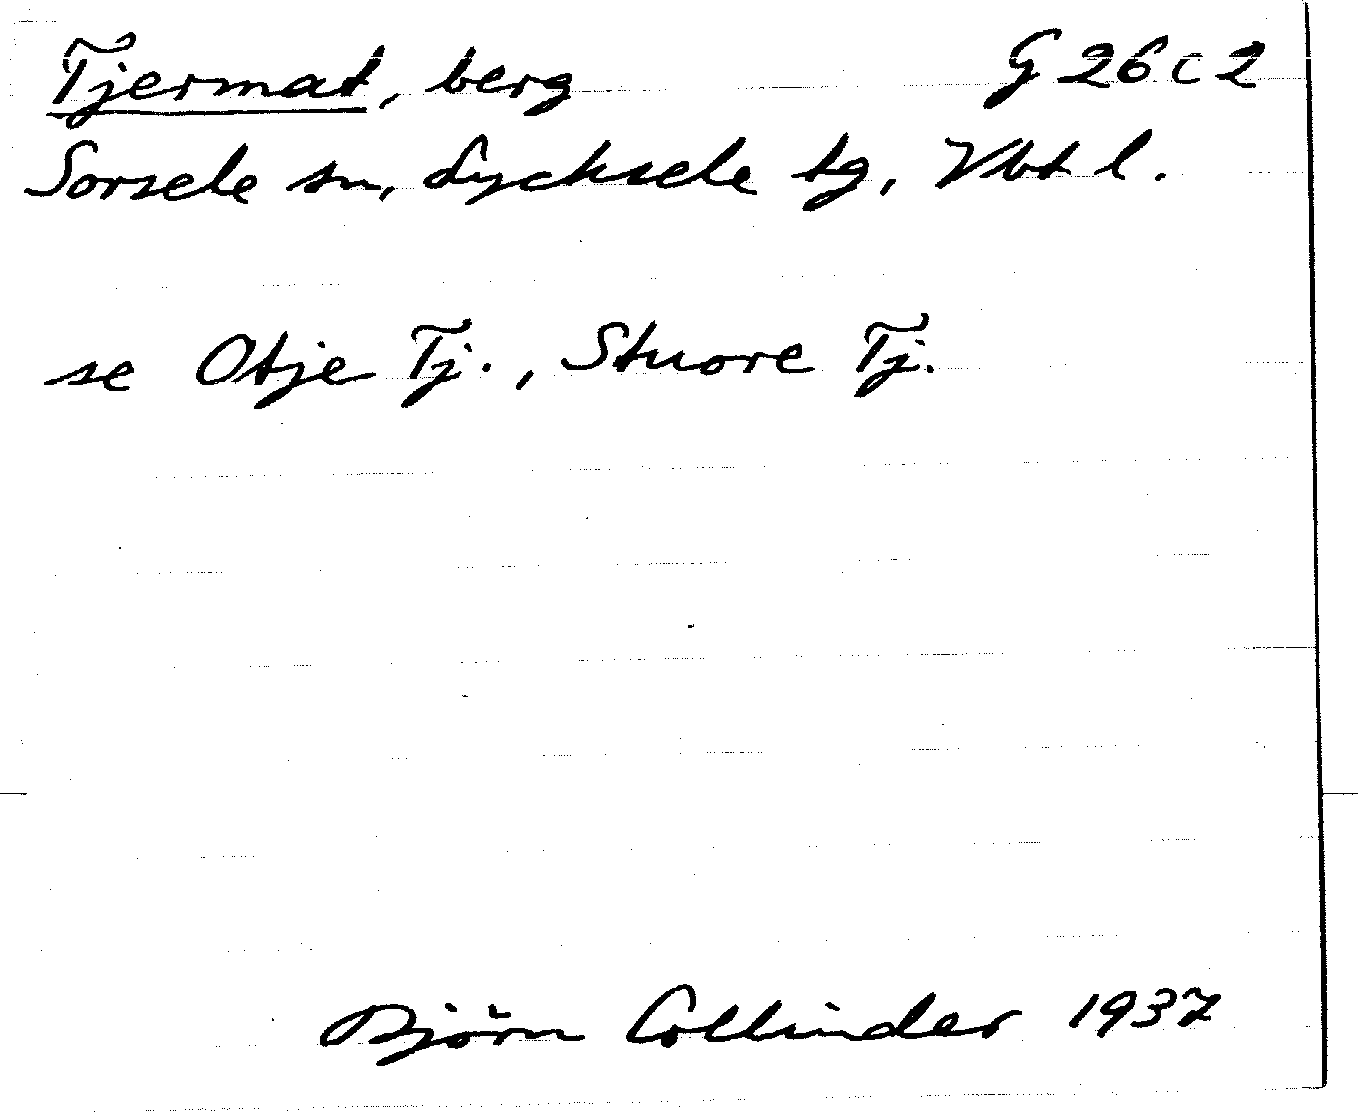 Tjermat, berg G 26 c 2
Sorsele sn, Lycksele tg, Vbt l.
se Otje Tj., Stuore Tj.
Björn Collinder 1937